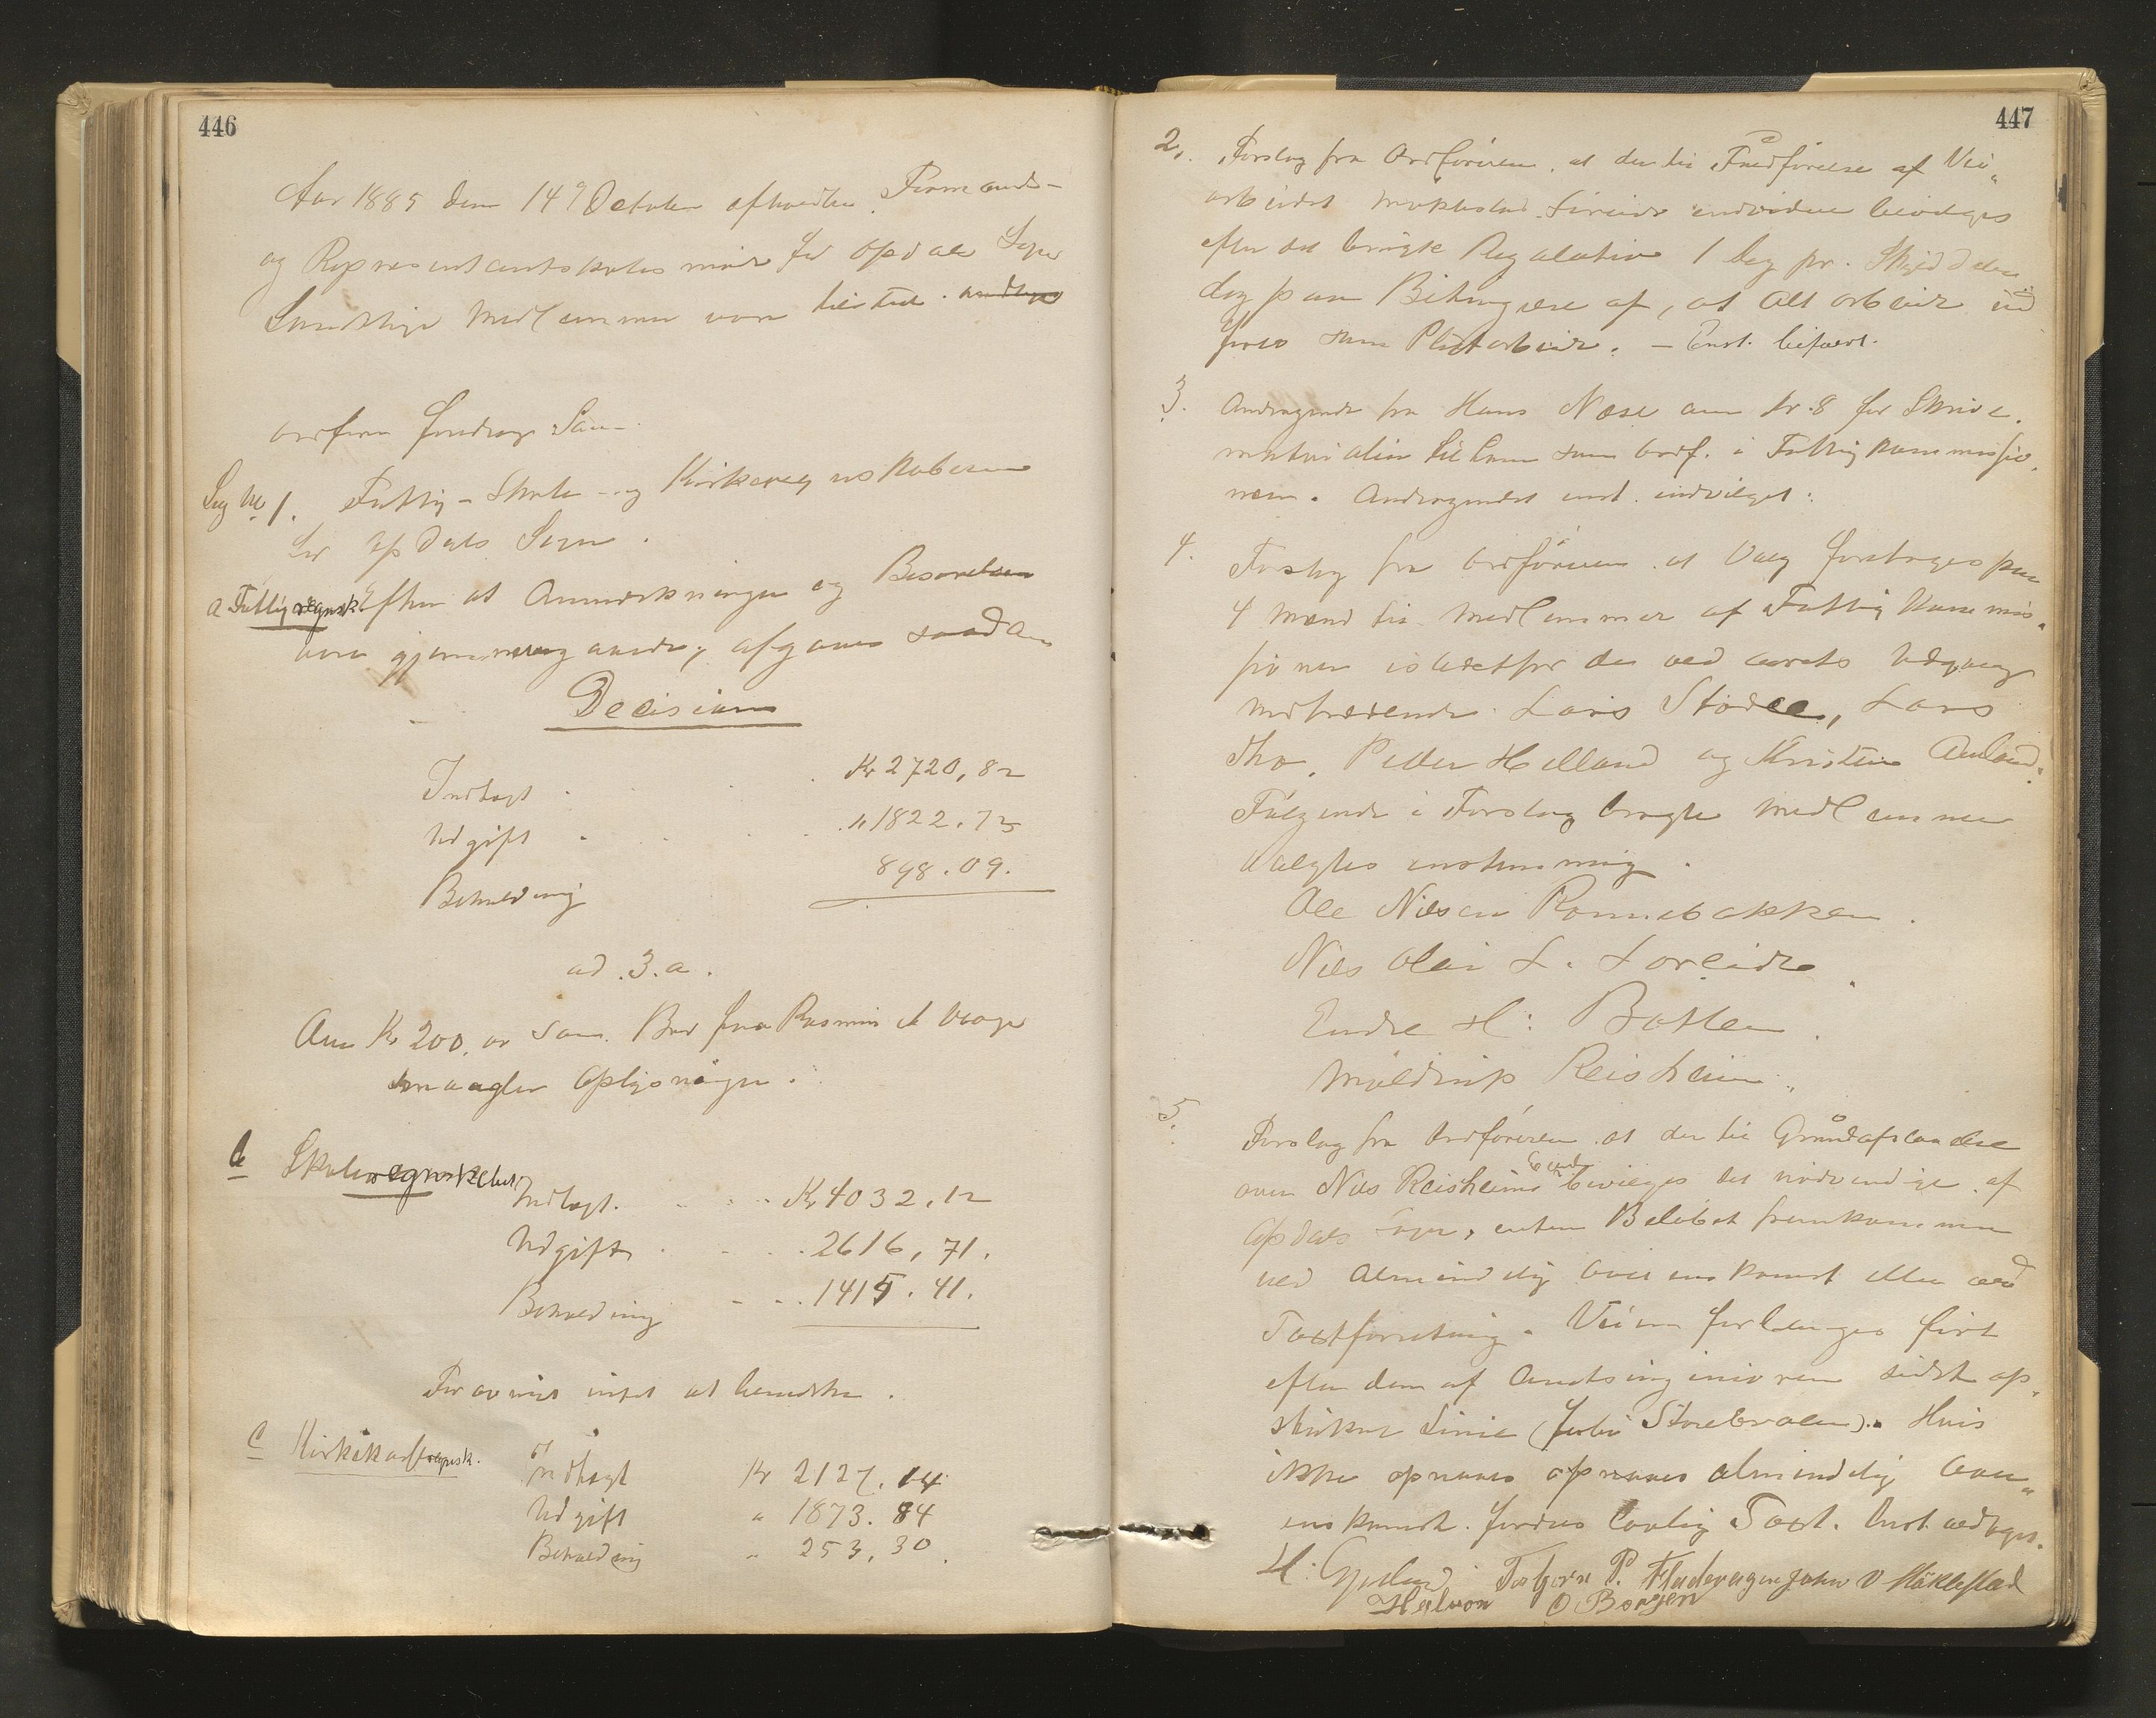 446
Aar 1885 den 14de October afholdtes Formands-
og Repræsentantskabsmöde for Opdals Sogn
Samtlige Medlemmer vare tilstede.
Ordföreren foredrog Sam
Sag No 1. Fattig- Skole- og Kirkeregnskaberne
for Opdals Sogn.
a Fattigregnsk. Efter at Anmærkninger og Besvarelsen
vare gjennemgaaede, afgaves saadan
Decision
Indtægt Kr 2720,82
Udgift " 1822.73
Beholdning 898.09.
ad. 3. a.
Om Kr 200. som Bro fra Rasmus
mangler Oplysninger.
b Skoleregnskabet
Indtægt. Kr 4032,12
Udgift 2616,71.
Beholdning 1415.41.
Forøvrigt intet at bemærke.
c Kirkekasseregnsk.
Indtægt Kr 2127.14
Udgift " 1873.84
Beholdning " 253,30.
447
2. Forslag fra Ordföreren. at der til Fuldförelse af Vei-
arbeidet Möklestad - Lireide endvidere bevilges
efter det brugte Regulativ 1 Dag pr. Skylddaler
dog paa Betingelse af, at Alt arbeide ud
föres som Pligtarbeide. - Enst. bifaldt.
3. Andragende fra Hans Næse om Kr. 8 for Skrive-
materialier til ham som Ordf. i Fattigkommissio-
nen. Andragendet enst. indvilget.
4. Forslag fra Ordföreren at Valg foretages paa
4 Mænd til Medlemmer af Fattig Kommis-
sionen istedetfor de ved Aarets Udgang
udtrædende Lars Stödle, Lars
Tho, Peder Helland og Kristen Auland.
Fölgende i Forslag bragte Medlemmer
valgtes enstemmig.
Ole Nilsen Ronnebakken.
Nils Olai L. Loreide.
Endre H: Botten.
Möldrup Reisheim.
5. Forslag fra Ordföreren at der til Grundafstaaelse
over Nils Reisheims bevilges det nödvendige af
Opdals Sogn, enten Belöbet fremkommer
ved Almindelig Overenskomst eller ved
Taxtforretning. Veien forlanges fört
efter den af Amtsingeniören sidst op-
stukne Linie (forbi Storebroen). Hvis
ikke opnaaes almindelig Over-
enskomst. fordres Lovlig Taxt. Enst. vedtaget.
H: Gjerland Torbjörn P. Fladevagen John O Mökle­stad
Halvor O Borgen